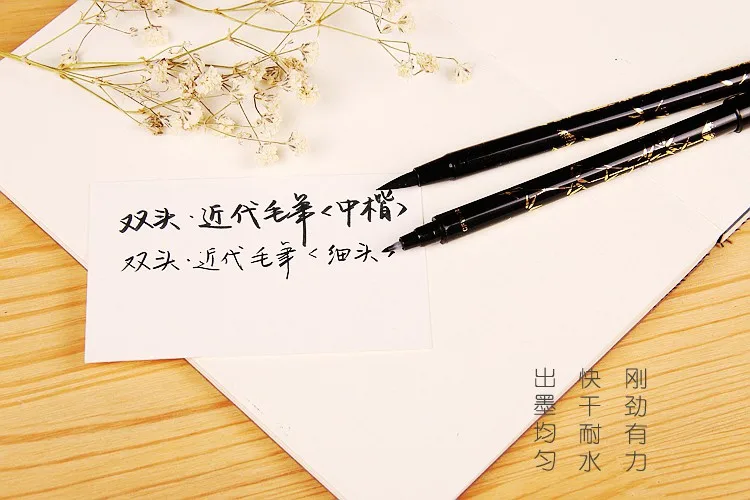 双头·近代毛笔<中楷>
双头·近代毛笔<细头>
刚劲有力
快干耐水
出墨均匀